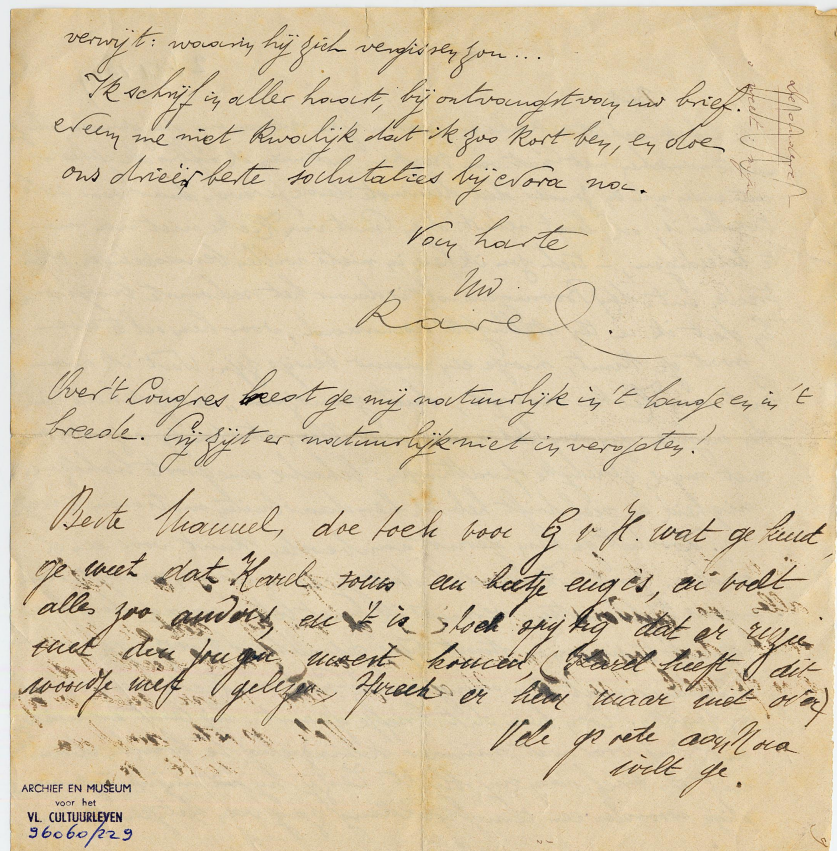 verwijt: waarin hij zich vergissen zou...
Ik schrijf in aller haast, bij ontvangst van uw brief.
Neem me niet kwalijk dat ik zoo kort ben, en doe
ons drieër beste salutaties bij Nora na.
Van harte
Uw
Karel.
Over 't Congres leest ge mij natuurlijk in 't lange en in 't
breede. Gij zijt er natuurlijk niet in vergeten!
Beste Manuel, doe toch voor G v H. wat ge kunt,
ge weet dat Karel soms een beetje eng is, en voelt
alles zoo anders, en 't is toch spijtig dat er ruzie
met den jongen moest komen, (Karel heeft dit
woordje niet gelezen, spreek er hem maar niet over)
Vele groete aan Nora
wilt ge.
ARCHIEF EN MUSEUM
voor het
VL. CULTUURLEVEN
96060/229